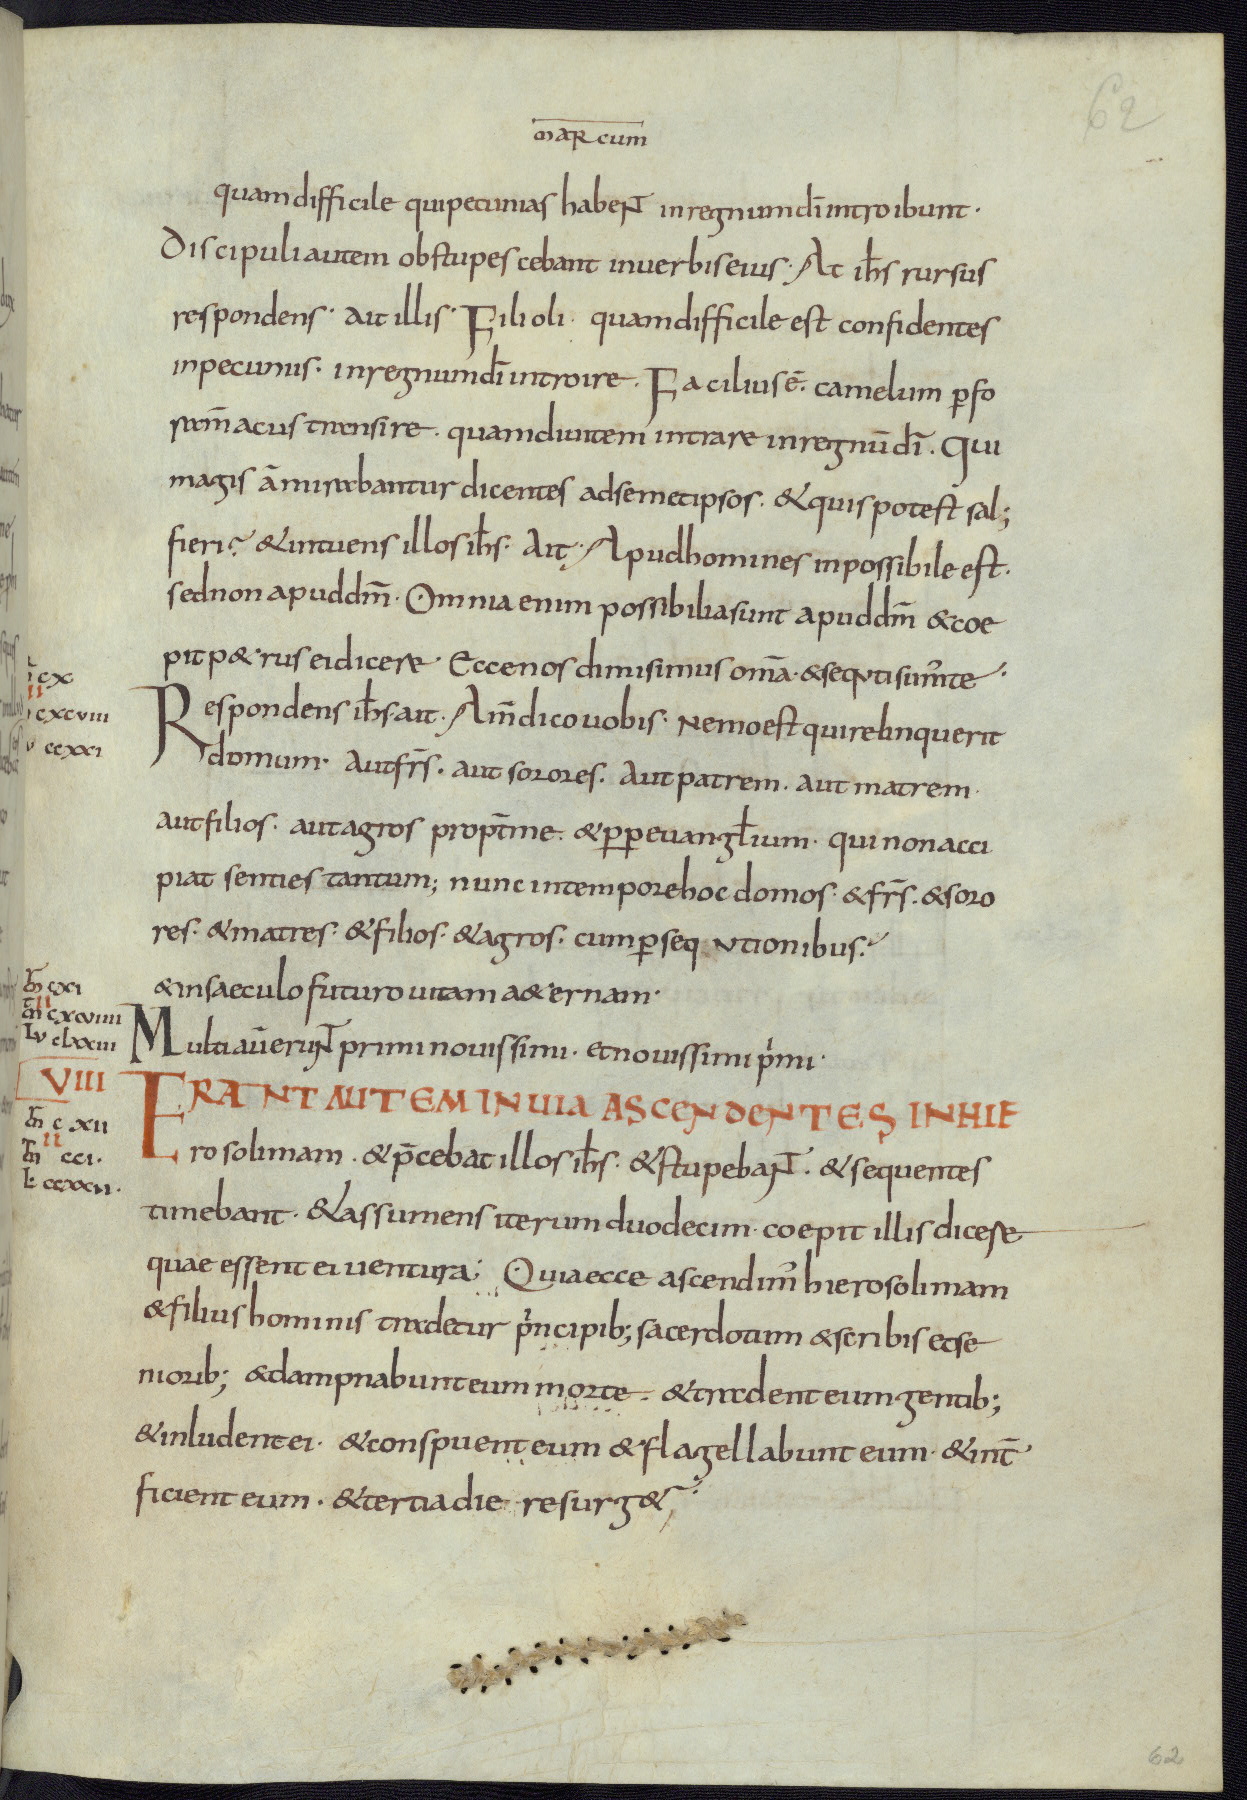 62
marcum
quam difficile qui pecunias habent in regnum dī introibunt·
Discipuli autem obstupescebant in uerbis eius· At ihs̄ rursus
respondens· ait illis· Filioli· quam difficile est confidentes
in pecuniis· in regnum dī introire· Facilius ē· camelum per fo
ramn̄ acus transire· quam diuitem intrare in regnū dī· Qui
magis āmirabantur dicentes ad semetipsos· & quis potest sal;
fieri? & intuens illos ihs̄· Ait· Apud homines inpossibile est·
sed non apud dm̄· Omnia enim possibilia sunt apud dm̄ & coe
pit p&rus ei dicere· Ecce nos dimisimus om̄a· & secuti sum̄ te·
Respondens ihs̄ ait· Am̄ dico uobis· Nemo est qui relinquerit
domum· Aut frs̄· aut sorores· Aut patrem· aut matrem·
aut filios· aut agros propt̄ me· & pp euangl̄ium· qui non acci
piat senties tantum; nunc in tempore hoc domos· & frs̄· & soro
res· & matres· & filios· & agros· cum persequutionibus·
& in saeculo futuro uitam a&ernam·
Multi aūt erunt primi nouissimi· et nouissimi primi·
VIII
ERANT AUTEM IN UIA ASCENDENTES IN HIE
rosolimam· & p̄cebat illos ihs̄· & stupebant· & sequentes
timebant· & assumens iterum duodecim· coepit illis dicere
quae essent ei uentura; Quia ecce ascendim̄ hierosolimam
& filius hominis tradetur principib; sacerdotum & scribis et se
niorib; & dampnabunt eum morte· & tradent eum gentib;
& inludent ei· & conspuent eum & flagellabunt eum· & int̄
ficient eum· & tertia die resurg&·
cxcviii
ccxxi
cxci
cxcviiii
clxxiii
cxcii
cci·
ccxxii·
62